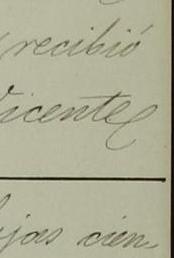 recibió
Vicente
jas cien